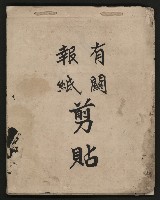 有關
報紙
剪貼